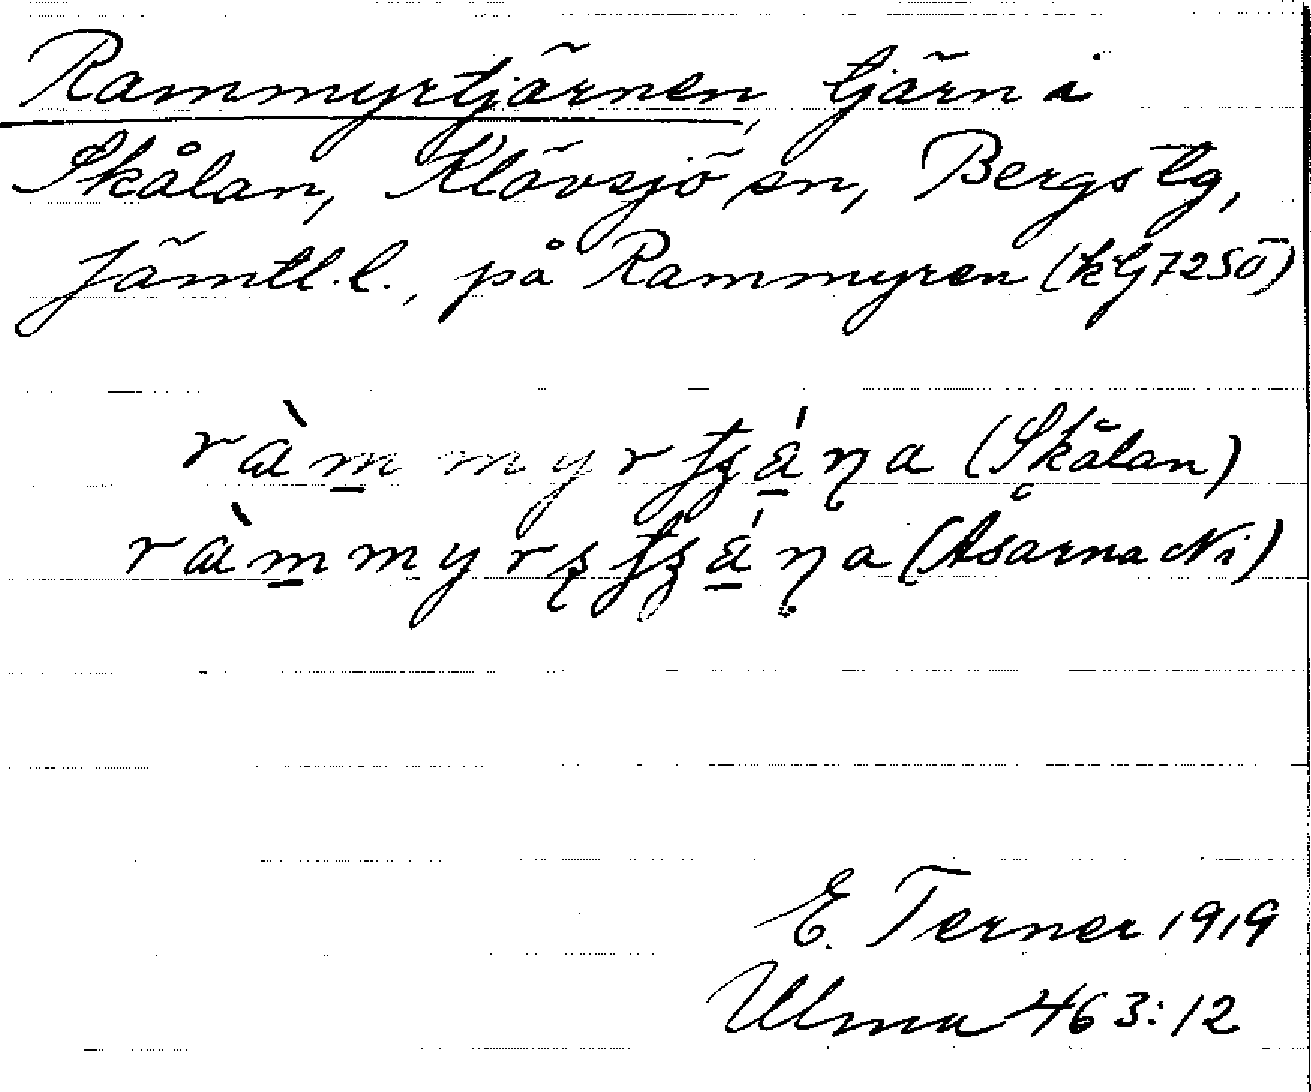 Rammyrtjärnen, tjärn i
Skålan, Klövsjö sn, Bergs tg,
Jämtl.l., på Rammyren
ràm myr (Skålan)
ràmmyr (Åsarna Ni)
E. Terner 1919
Ulma 463:12